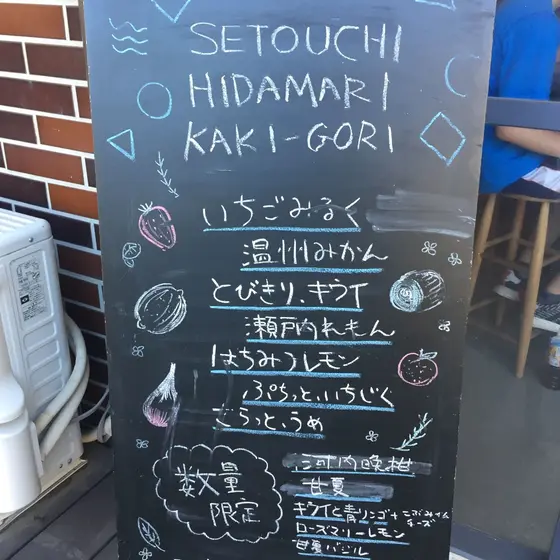 SETOUCHI
HIDAMARI
KAKI-GORI
いちごみるく
温州みかん
とびきり、キウイ
瀬戸内れもん
はちみつレモン
ぷちっと、いちじく
ごらっと、うめ
数量
限定
河内晩柑
甘夏
キウイと青リンゴ+
チーズ
ローズマリーレモン
甘夏バジル